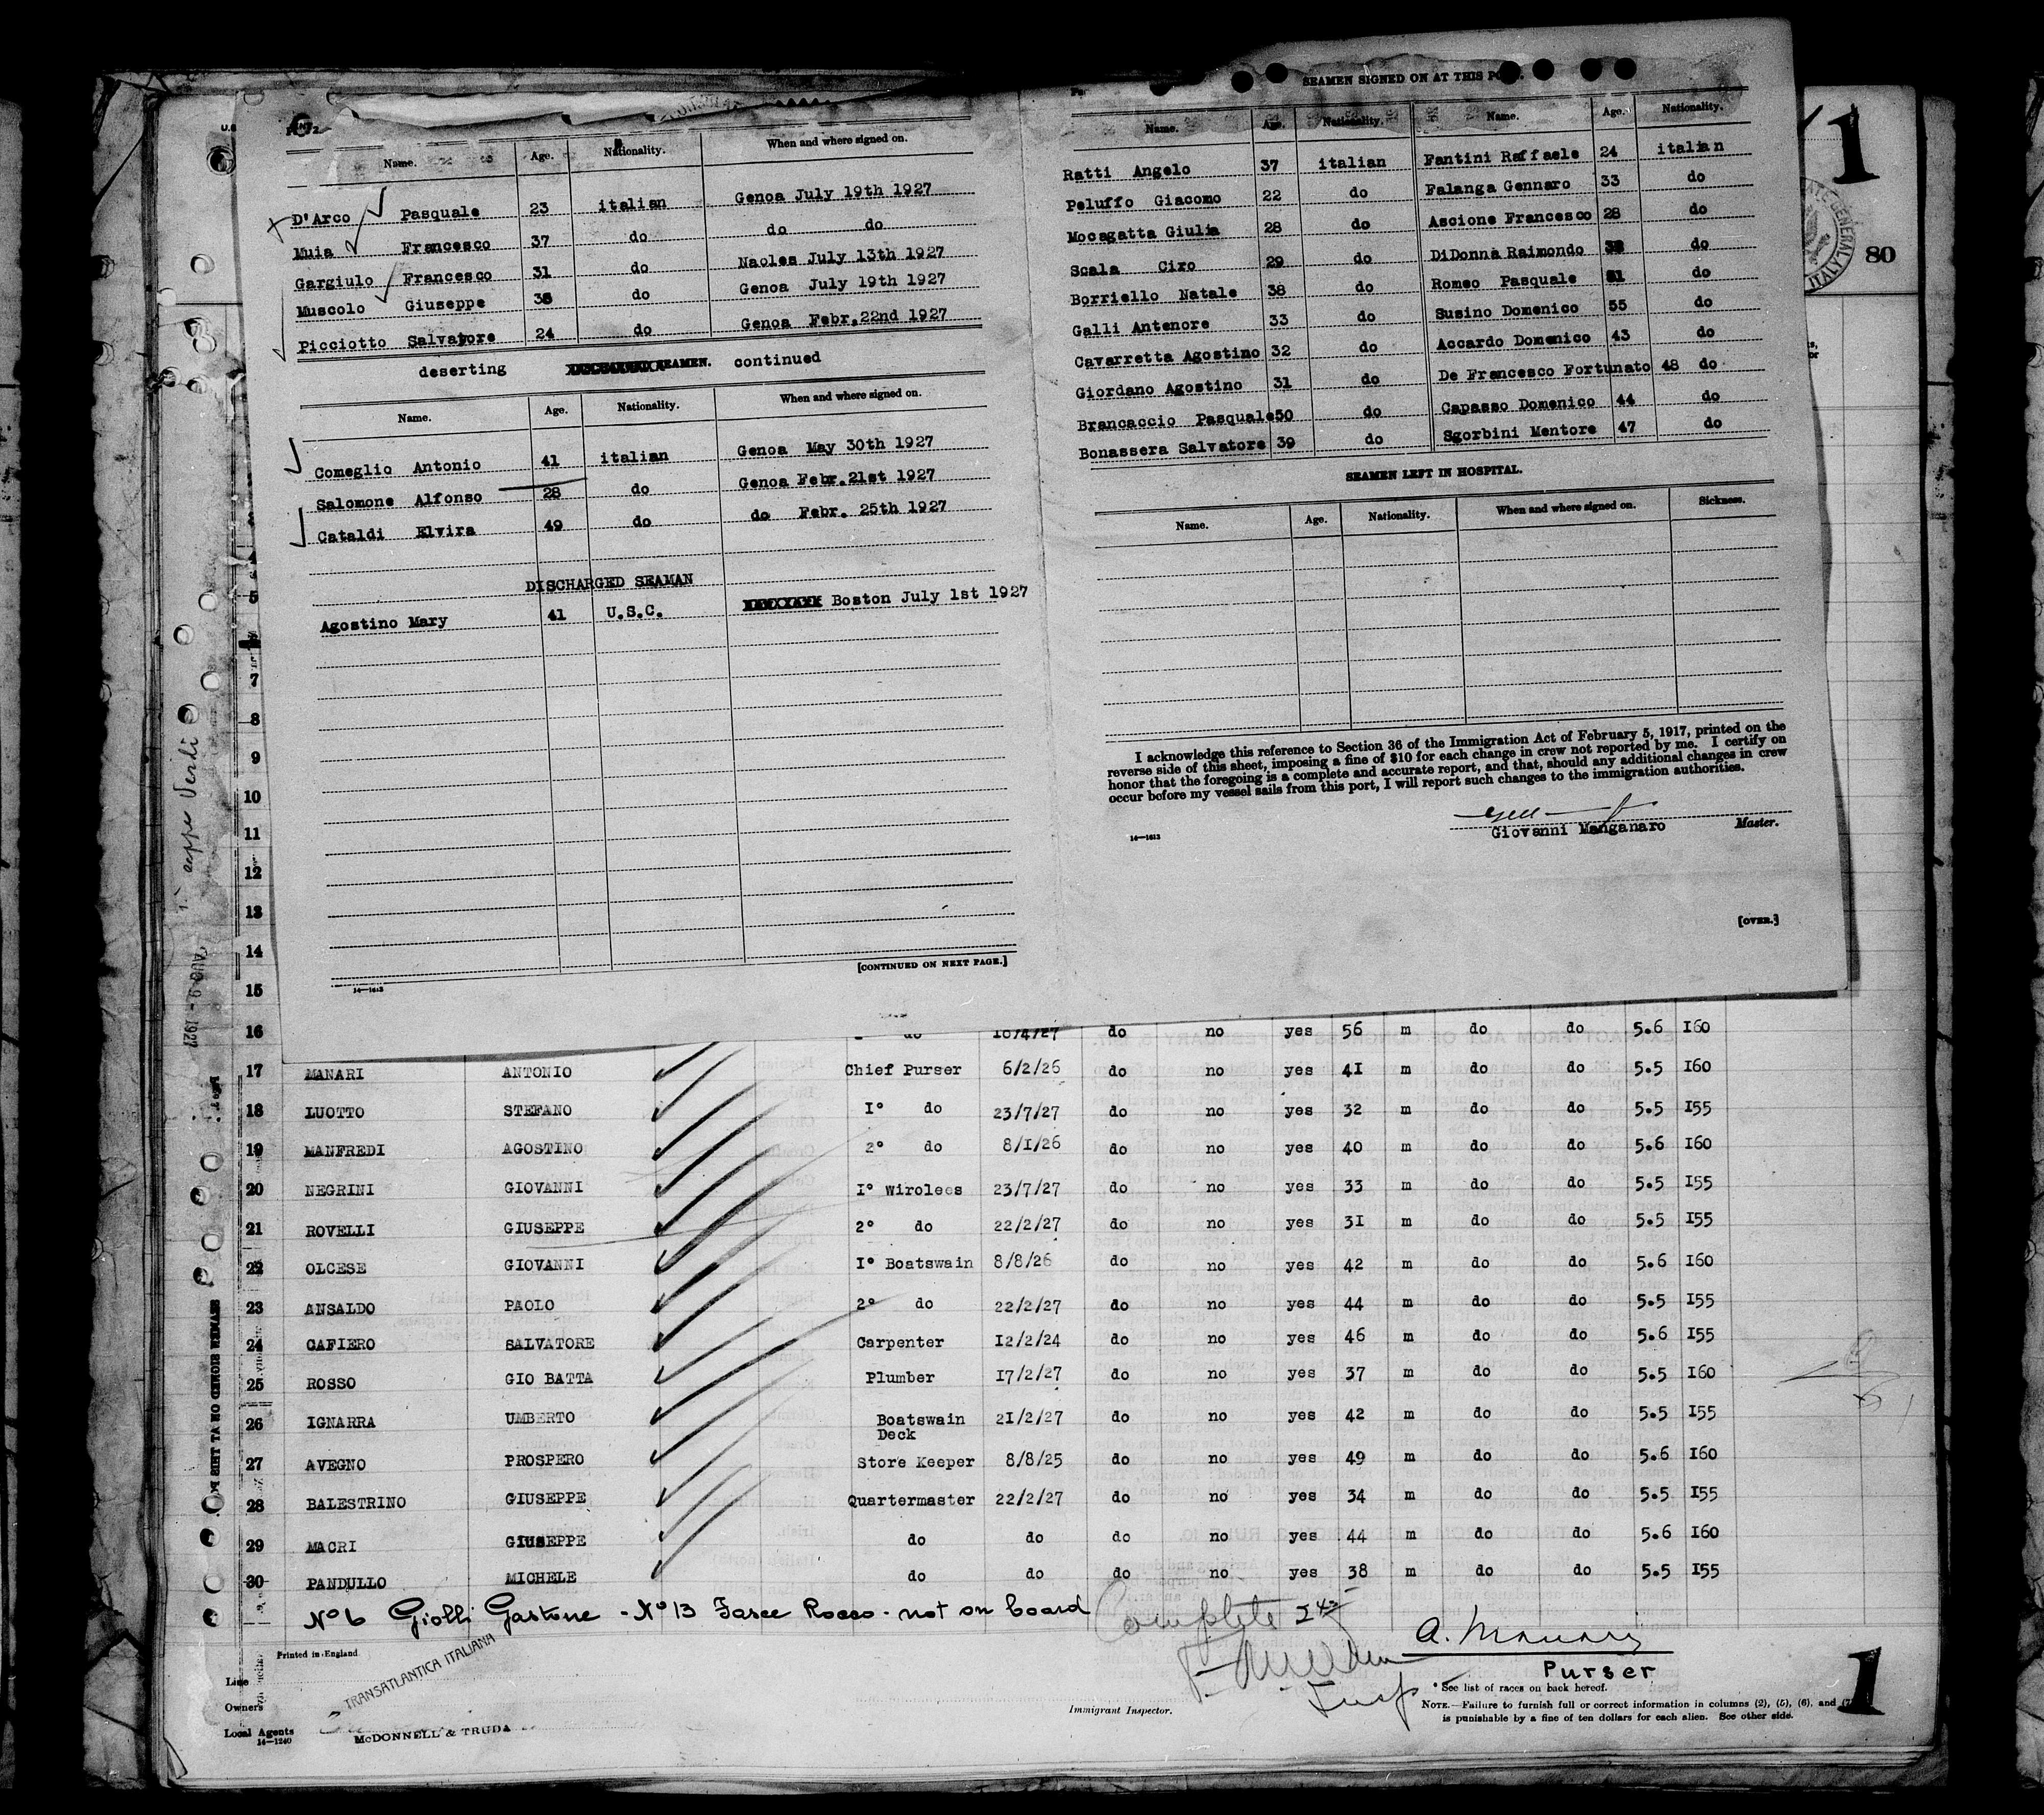 Name. Age. Nationality. When and where signed on.
D'Arco Pasquale 23 italian Genoa July 19th 1927
Muia Francesco 37 do do do
Gargiulo Francesco 31 do Naoles July 13th 1927
Muscolo Giuseppe do Genoa July 19th 1927
Picciotto Salvatore 24 do Genoa Febr.22nd 1927
deserting SEAMEN. continued
Name. Age. Nationality. When and where signed on.
Comeglio Antonio 41 italian Genoa May 30th 1927
Salomone Alfonso 28 do Genoa Febr.21st 1927
Cataldi Elvira 49 do do Febr. 25th 1927
DISCHARGED SEAMAN
Agostino Mary 41 U.S.C. Boston July 1st 1927
[CONTINUED ON NEXT PAGE.]
14—1613
SEAMEN SIGNED ON AT THIS
Name. Age. Nationality. Name. Age. Nationality.
Ratti Angelo 37 italian Fantini Raffaele 24 italian
Peluffo Giacomo 22 do Falanga Gennaro 33 do
Mocagatta Giulia 28 do Ascione Francesco 28 do
Scala Ciro 29 do DiDonna Raimondo do
Borriello Natale 38 do Romeo Pasquale do
Galli Antenore 33 do Susino Domenico 55 do
Cavarretta Agostino 32 do Accardo Domenico 43 do
Giordano Agostino 31 do De Francesco Fortunato 48 do
Brancaccio Pasquale 50 do Capasso Domenico 44 do
Bonassera Salvatore 39 do Sgorbini Mentore 47 do
SEAMEN LEFT IN HOSPITAL.
Name. Age. Nationality. When and where signed on. Sickness.
I acknowledge this reference to Section 36 of the Immigration Act of February 5, 1917, printed on the
reverse side of this sheet, imposing a fine of $10 for each change in crew not reported by me. I certify on
honor that the foregoing is a complete and accurate report, and that, should any additional changes in crew
occur before my vessel sails from this port, I will report such changes to the immigration authorities.
14—1613
Giovanni Manganaro Master.
[OVER.]
1
80
5
7
8
9
10
11
12
13
14
15
AUG - 9 - 1927
16 do 18/4/27 do no yes 56 m do do 5.6 I60
17 MANARI ANTONIO Chief Purser 6/2/26 do no yes 41 m do do 5.5 I60
18 LUOTTO STEFANO I° do 23/7/27 do no yes 32 m do do 5.5 I55
19 MANFREDI AGOSTINO 2° do 8/I/26 do no yes 40 m do do 5.6 I60
20 NEGRINI GIOVANNI I° Wirolees 23/7/27 do no yes 33 m do do 5.5 I55
21 ROVELLI GIUSEPPE 2° do 22/2/27 do no yes 3I m do do 5.5 I55
22 OLCESE GIOVANNI I° Boatswain 8/8/26 do no yes 42 m do do 5.6 I60
23 ANSALDO PAOLO 2° do 22/2/27 do no yes 44 m do do 5.5 I55
24 CAFIERO SALVATORE Carpenter I2/2/24 do no yes 46 m do do 5.6 I55
25 ROSSO GIO BATTA Plumber I7/2/27 do no yes 37 m do do 5.5 I60
26 IGNARRA UMBERTO Boatswain Deck 2I/2/27 do no yes 42 m do do 5.5 I55
27 AVEGNO PROSPERO Store Keeper 8/8/25 do no yes 49 m do do 5.6 I60
28 BALESTRINO GIUSEPPE Quartermaster 22/2/27 do no yes 34 m do do 5.5 I55
29 MACRI GIUSEPPE do do do no yes 44 m do do 5.6 I60
30 PANDULLO MICHELE do do do no yes 38 m do do 5.5 I55
N° 6 Giolli Gastone - N° 13 Fasce Rocco - not on board
Complete
A. Manari
Purser
Insp
Printed in England
Line
TRANSATLANTICA ITALIANA
Owners
Local Agents
McDONNELL & TRUDA
14—1240
Immigrant Inspector.
* See list of races on back hereof.
NOTE.—Failure to furnish full or correct information in columns (2), (5), (6), and (7)
is punishable by a fine of ten dollars for each alien. See other side.
1